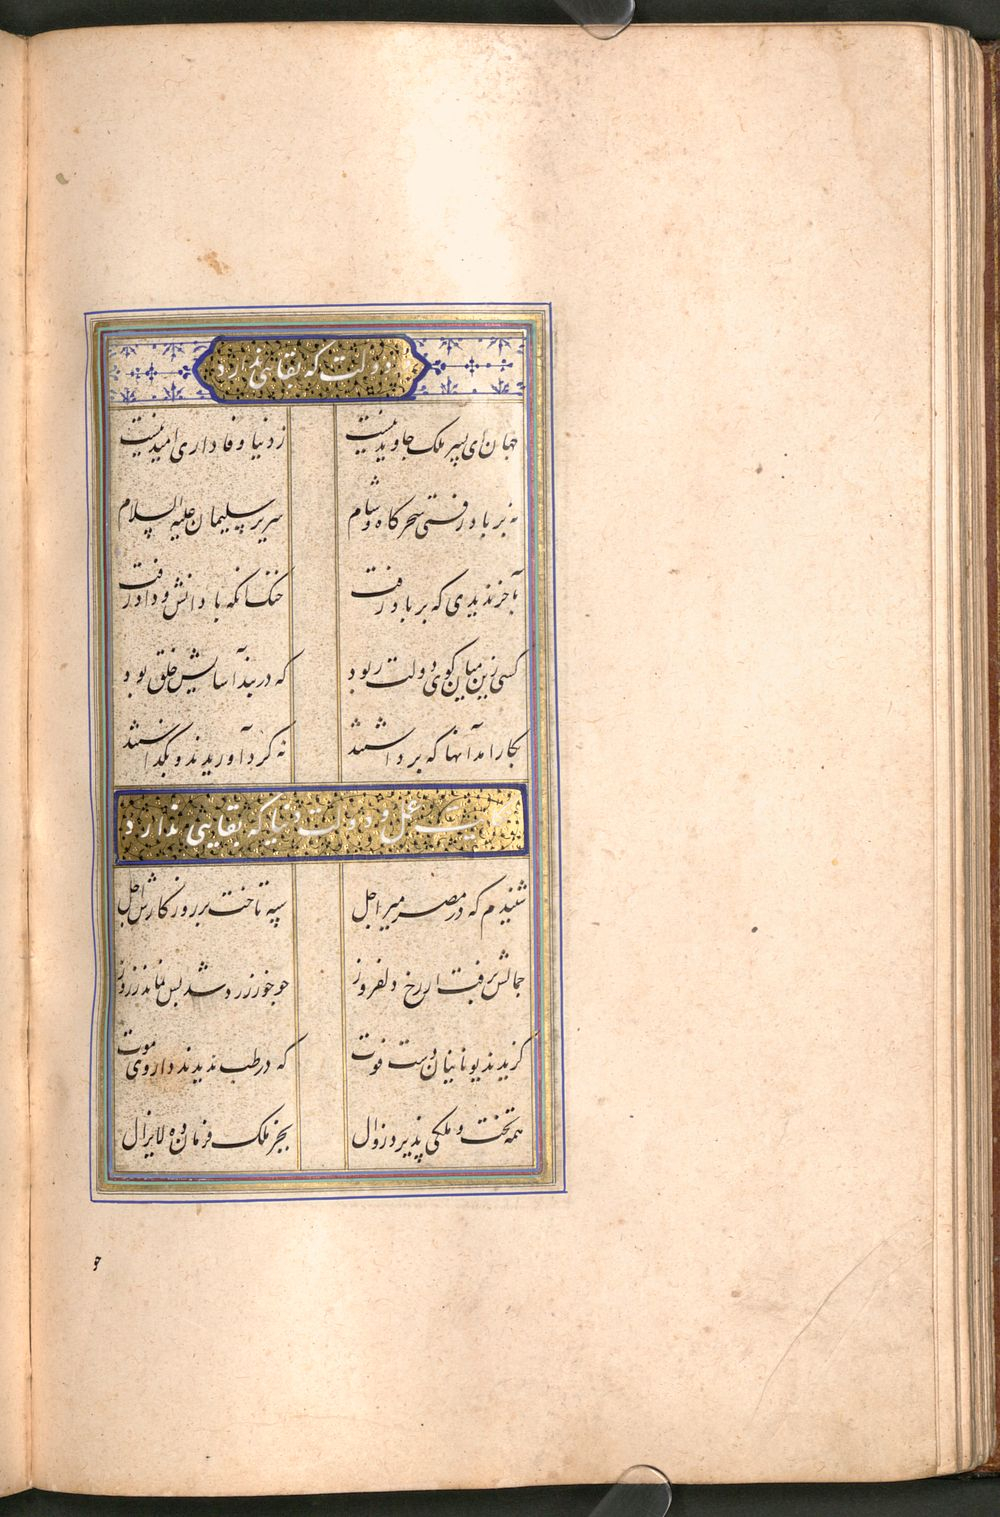 دولت که بقایی ندارد
جهان ای پسر ملک جاوید نیست ز دنیا وفاداری امید نیست
نه بر باد رفتی سحرگاه و شام سریر سلیمان علیه السلام
بآخر ندیدی که بر باد رفت خنک آنکه با دانش و داد رفت
کسی زین میان گوی دولت ربود که در بند آسایش خلق بود
بکار آمد آنها که برداشتند نه گرد آوریدند و بگذاشتند
حکایت عمل و دولت دنیا که بقایی ندارد
شنیدم که در مصر میر اجل سپه تاخت بر روزگارش اجل
جمالش برفت از رخ دلفروز چو خور زرد شد بس نماند ز روز
گزیدند یونانیان دست فوت که در طب ندیدند داروی موت
همه تخت و ملکی پذیرد زوال بجز ملک فرمان ده لایزال
چو